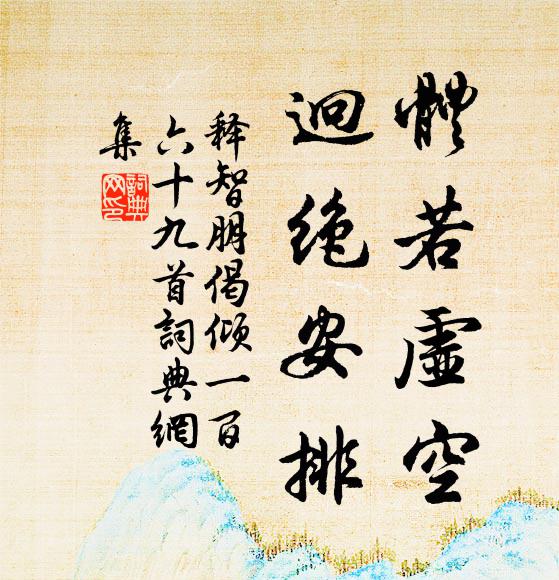 體若虛空
迥絶安排
释智朋偈傾一百
六十九首詞典網
集
詞典
网印